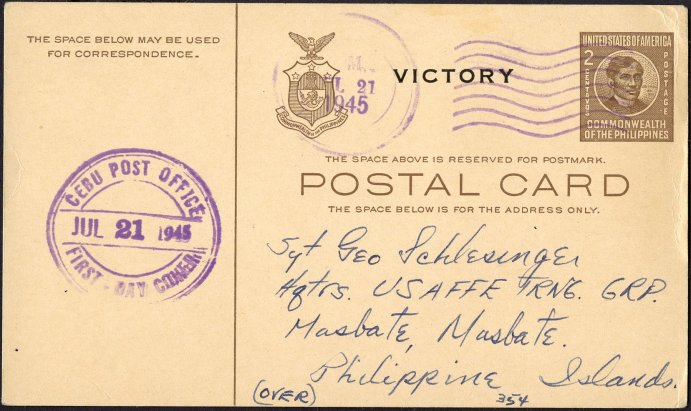 THE SPACE BELOW MAY BE USED
FOR CORRESPONDENCE.
VICTORY
21
1945
UNITED STATES OF AMERICA
2
CENTVOS
POSTAGE
COMMONWEALTH
OF THE PHILIPPINES
THE SPACE ABOVE IS RESERVED FOR POSTMARK.
POSTAL CARD
THE SPACE BELOW IS FOR THE ADDRESS ONLY.
CEBU POST OFFICE
JUL 21 1945
FIRST-DAY COVER
Sgt Geo Schlesinger
Hqtrs. USAFFE TRNG. GRP.
Masbate, Masbate.
Philippine Islands.
(OVER)
354